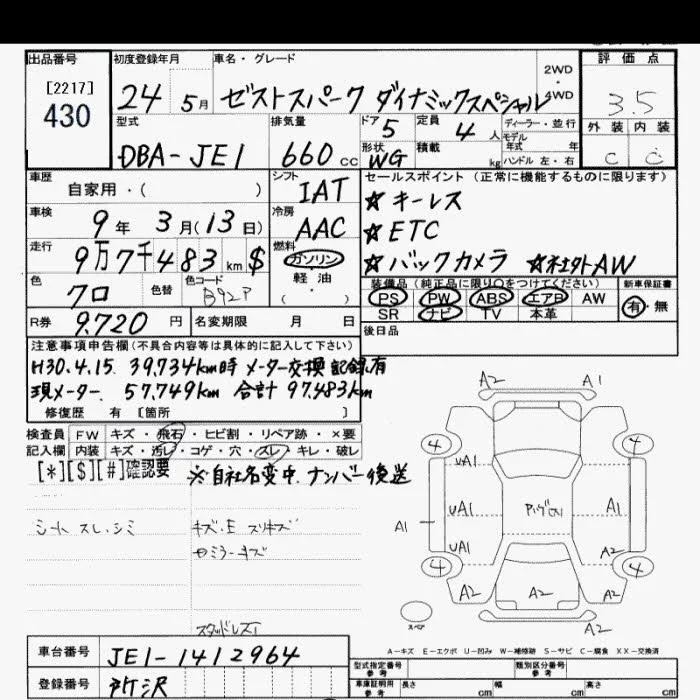 出品番号 初度登録年月 車名・グレード 評価点
[2217]
430
24 5月 ゼストスパーク ダイナミックスペシャル 2WD・4WD 3.5
型式 排気量 ドア 定員 ディーラー・並行 外装 内装
DBA-JE1 660cc 5 4人 モデル年式 年 C C
形状 WG 積載 kg ハンドル 左・右
車歴 シフト セールスポイント(正常に機能するものに限ります)
自家用・( ) IAT ☆キーレス
車検 9年 3月(13日) 冷房 AAC ☆ETC
走行 9万7千483km $ 燃料 ガソリン ☆バックカメラ ☆社外AW
軽油
( )
色 クロ 色替 色コード B92P
装備品(純正品に限り○をつけてください) 新車保証書
PS PW ABS エアB AW 有・無
SR ナビ TV 本革
R券 9,720円 名変期限 月 日 後日品
注意事項申告欄(不具合内容等は具体的に記入して下さい)
H30.4.15. 39,734km時 メーター交換記録有
現メーター. 57,749km 合計 97,483km
修復歴 有 [箇所 ]
検査員 FW キズ・飛石・ヒビ割・リペア跡・×要
記入欄 内装 キズ・汚レ・コゲ・穴・スレ・キレ・破レ
[*][$][#]確認要 ※自社名変中.ナンバー後送
シート スレ.シミ キズ・E スリキズ
スタッドレス
A2 A1
4 4
UA1
UA1 A1
A1
UA1 A2
4 4
A2 A2 A2
スペア A2
A-キズ E-エクボ U-凹み W-補修跡 S-サビ C-腐食 XX-交換済
車台番号 JE1-1412964
登録番号 所沢
型式指定番号 参考 類別区分番号 参考
車庫証明用 参考 長さ cm 幅 cm 高さ cm